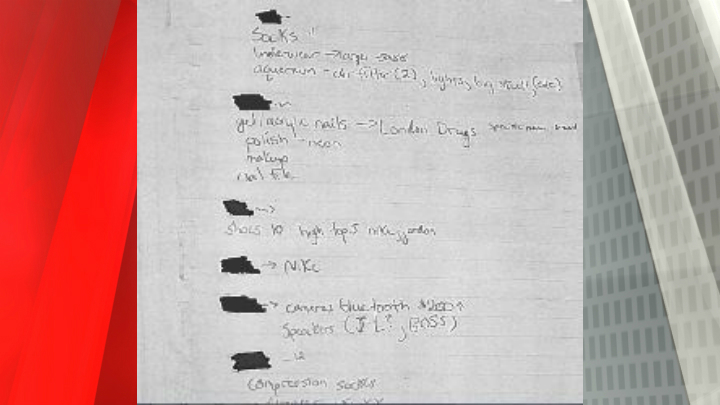 Socks
underwear → large
aquarium - air filter (2), lights, big shell,
gel/acrylic nails → London Drugs
polish - neon
makeup
nail file
shoes 10 high tops Nike, Jordan
→ Nike
→ cameras bluetooth $200
Speakers (JBL?, BOSS)
- 12
Compression socks